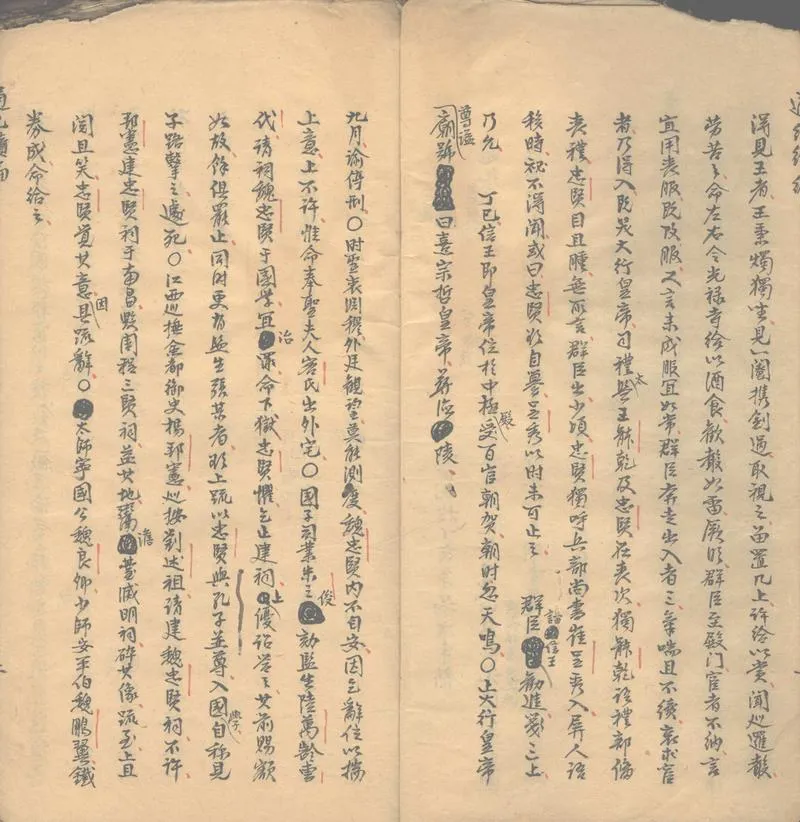 得見王者王秉燭獨坐見一閹携劍過取視之留置几上許給以賞聞巡邏聲
勞苦之命左右令光禄寺给以酒食歡聲如雷厥明群臣至殿门宦者不納言
宜用丧服既改服又言未成服宜如常群臣奔走出入者三氣喘且不續哀求宦
者乃得入既哭大行皇帝司禮太监王躰乾及忠賢在丧次獨躰乾语禮部偹
丧禮忠賢目且腫無所言群臣出少頃忠賢獨呼兵部尚書崔呈秀入屏人语
移時祕不得聞或曰忠賢欲自篡呈秀以时未可止之 群臣詣信王勸進箋三上
乃允 丁巳信王即皇帝位於中極殿受百官朝賀朝时忽天鳴〇上大行皇帝
尊谥廟號曰熹宗哲皇帝葬德陵
九月谕停刑〇时聖衷渊穆外廷觀望莫能測度魏忠賢内不自安因乞辭位以揣
上意上不許惟命奉聖夫人客氏出外宅〇國子司業朱之俊劾監生陸萬齡曹
代请祠魏忠賢于國學宜治罪命下獄忠賢懼乞止建祠上優诏答之其前賜額
如故餘俱罷止同时更有监生張某者欲上疏以忠賢與孔子並尊入國學自称見
子路擊之遽死〇江西巡撫僉都御史楊邦憲巡按劉述祖请建魏忠賢祠不許
邦憲建忠賢祠于南昌毁周程三賢祠益其地鬻澹臺滅明祠碎其像疏至上且
閲且笑忠賢覚其意因具疏辭〇太師寧國公魏良卿少師安平伯魏鵬翼鐵
券成命给之